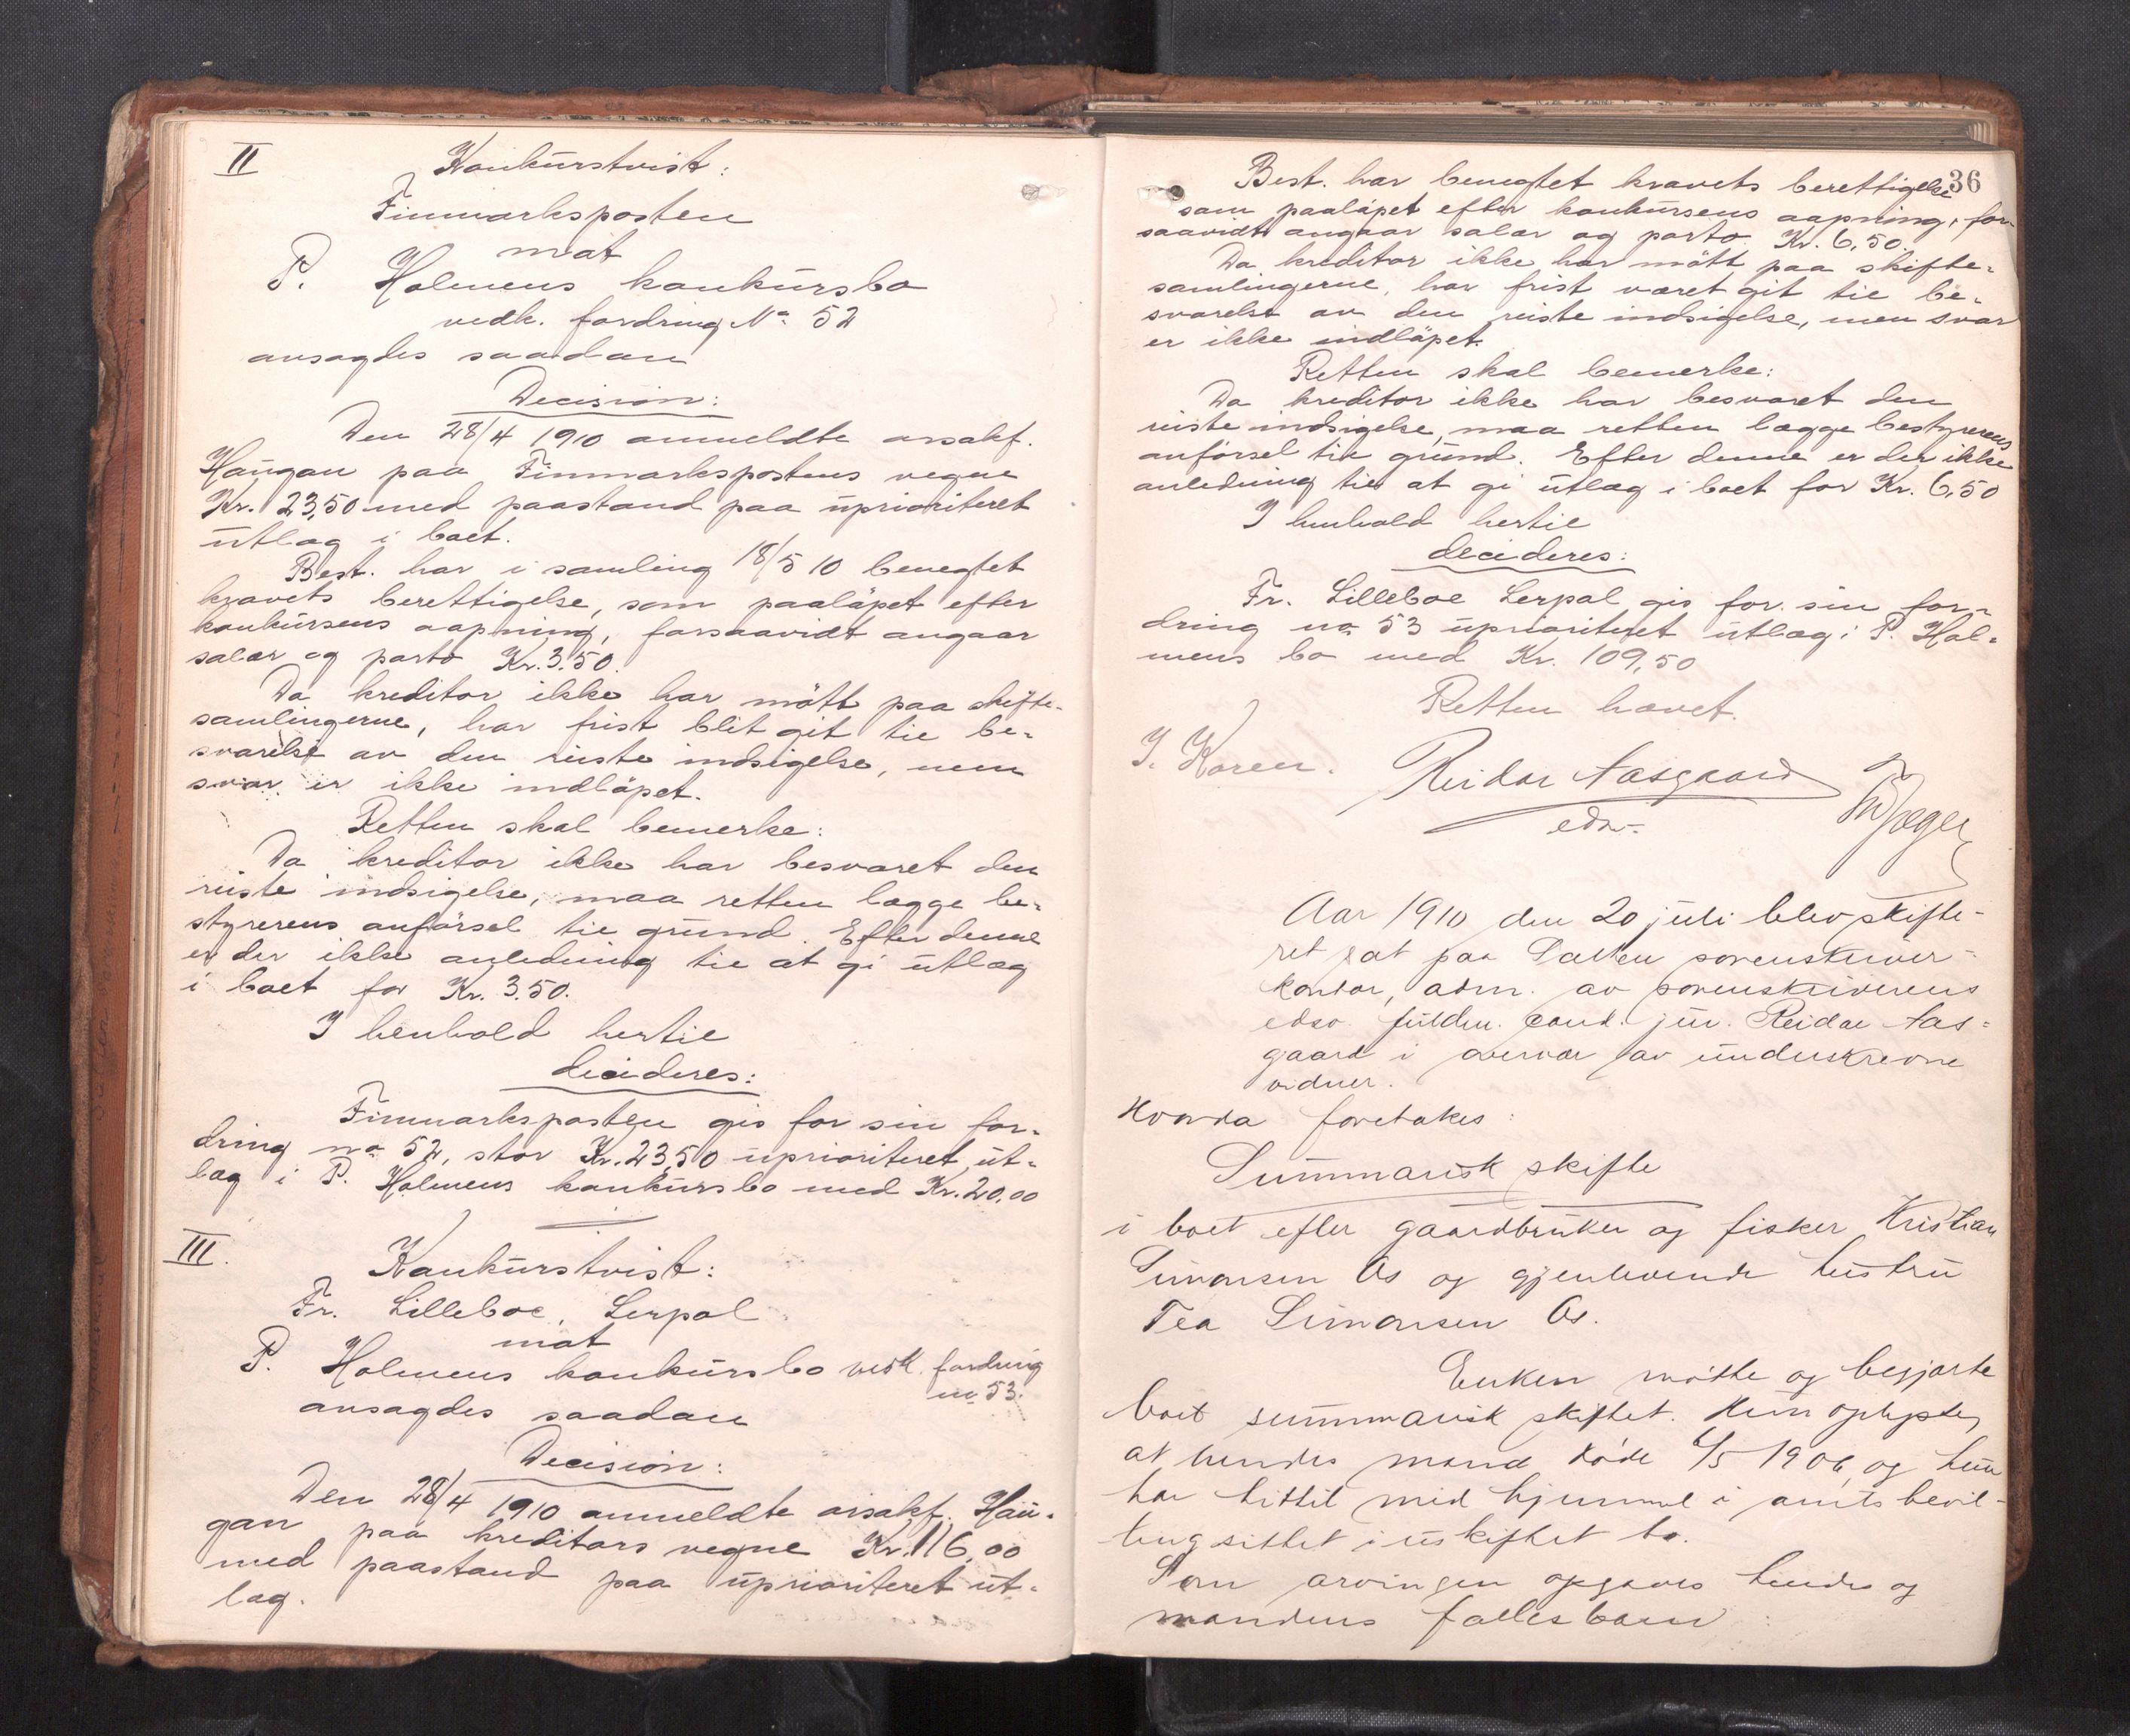 II Konkurstvist:
Finmarksposten
mot
P. Holmens konkursbo
vedk. fordring No 52
avsagdes saadan
Decision:
Den 28/4 1910 anmeldte ovsakf.
Haugan paa Finmarkspostens vegne
Kr. 23,50 med paastand paa uprioriteret
utlæg i boet.
Best. har i samling 18/5 10 benegtet
kravets berettigelse, som paaløpet efter
konkursens aapning, forsaavidt angaar
salær og porto Kr. 3.50.
Da kreditor ikke har møtt paa skifte-
samlingerne, har frist blit git til be-
svarelse av den reiste indsigelse, men
svar er ikke indløpet.
Retten skal bemerke:
Da kreditor ikke har besvaret den
reiste indsigelse, maa retten lægge be-
styrerens anførsel til grund. Efter denne
er der ikke anledning til at gi utlæg
i boet for Kr. 3.50.
I henhold hertil
decideres:
Finmarksposten gis for sin for-
dring no 52, stor Kr. 23,50 uprioriteret ut-
læg i P. Holmens konkursbo med Kr. 20,00
III. Konkurstvist:
Fr. Lilleboe, Lerpol
mot
P. Holmens konkursbo vedk. fordring
no 53.
avsagdes saadan
Decision:
Den 28/4 1910 anmeldte ovsakf. Hau-
gan paa kreditors vegne Kr. 116,00
med paastand paa uprioriteret ut-
læg.
36
Best. har benegtet kravets berettigelse
som paaløpet efter konkursens aapning, for-
saavidt angaar salær og porto Kr. 6,50.
Da kreditor ikke har møtt paa skifte-
samlingerne, har frist været git til be-
svarelse av den reiste indsigelse, men svar
er ikke indløpet.
Retten skal bemerke:
Da kreditor ikke har besvaret den
reiste indsigelse, maa retten lægge bestyrerens
anførsel til grund. Efter denne er der ikke
anledning til at gi utlæg i boet for Kr. 6,50
I henhold hertil
decideres:
Fr. Lilleboe Lerpol gis for sin for-
dring no 53 uprioriteret utlæg i P. Hol-
mens bo med Kr. 109,50
Retten hævet.
J. Koren. Reidar Aasgaard
edsv.
Aar 1910 den 20 juli blev skifte-
ret sat paa Salten sorenskriver-
kontor, adm. av sorenskriverens
edsv. fuldm. cand. jur. Reidar Aas-
gaard i overvær av underskrevne
vidner.
Hvorda foretokes:
Summarisk skifte
i boet efter gaardbruker og fisker Kristian
Simonsen Os og gjenlevende hustru
Tea Simonsen Os.
Enken møtte og begjærte
boet summarisk skiftet. Hun oplyste,
at hendes mand døde 6/5 1906, og hun
har hittil med hjemmel i amtsbevil-
ling sittet i uskiftet bo.
Som arvinger opgaves hendes og
mandens fælles barn: